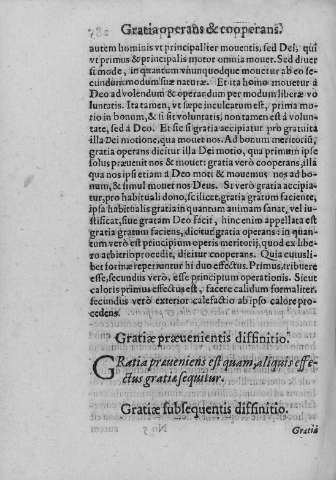 Gratia operans & cooperans.
autem hominis vt principaliter mouentis, sed Dei, qui
vt primus & principalis motor omnia mouet. Sed diuer
si mode, in quantum vnunquodque mouetur ab eo se-
cundùm modum suæ naturæ. Et ita homo mouetur à
Deo ad volendum & operandum per modum liberæ vo
luntatis. Ita tamen, vt sæpe inculcatum est, prima mo-
tio in bonum, & si sit voluntatis, non tamen est à volun-
tate, sed à Deo. Et sic si gratia accipiatur pro gratuita
illa Dei motione, qua mouet nos. Ad bonum meritorium;
gratia operans dicitur illa Dei motio, qua primùm ipse
solus præuenit nos & mouet: gratia verò cooperans, illa
qua nos ipsi etiam à Deo moti & mouemus nos ad bo-
num, & simul mouet nos Deus. Si verò gratia accipia-
tur, pro habituali dono, scilicet, gratia gratum faciente,
ipsa habitualis gratia in quantum animam sanat, vel iu-
stificat, siue gratam Deo facit, hinc enim appellata est
gratia gratum faciens, dicitur gratia operans: in quan-
tum verò est principium operis meritorij, quod ex libe-
ro arbitrio procedit, dicitur cooperans. Quia cuiusli-
bet formæ reperiuntur hi duo effectus. Primus, tribuere
esse, secundus verò, esse principium operationis. Sicut
caloris primus effectus est, facere calidum formaliter,
secundus verò exterior calefactio ab ipso calore pro-
cedens.
Gratiæ præuenientis diffinitio.
GRatia præueniens est quam, aliquis effe-
ctus gratiæ sequitur.
Gratiæ subsequentis diffinitio.
Gratia